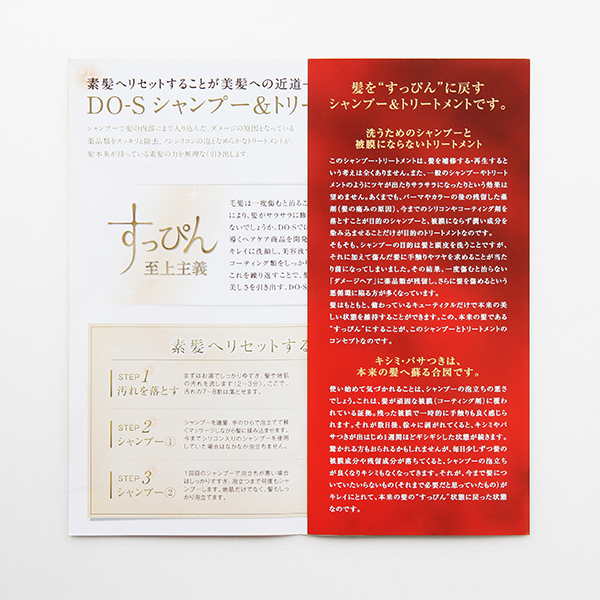 素髪へリセットすることが美髪への近道
DO-S シャンプー&トリー
シャンプーで髪の内部にまで入り込んだ、ダメージの原因となっている
薬品類をスッキリと落とす、ノンシリコンの泡となめらかなトリートメントが、
髪本来が持っている素髪の力を無理なく引き出します。
すっぴん
至上主義
毛髪は一度傷むと治るこ
により、髪がサラサラに
ないでしょうか。DO-Sでは
導くヘアケア商品を開発
キレイに洗顔し、美容液
コーティング類をしっかり
これを繰り返すことで、髪
美しさを引き出す。DO-S
素髪へリセットする
STEP 1
汚れを落とす
まずはお湯でしっかりゆすぎ、髪や地肌
の汚れを流します(2~3分)。ここで、
汚れの7~8割は落とせます。
STEP 2
シャンプー①
シャンプーを適量、手のひらで泡立てて軽
くマッサージしながら髪に揉み込ませます。
今までシリコン入りのシャンプーを使用
していた場合はなかなか泡立ちません。
STEP 3
シャンプー②
1回目のシャンプーで泡立ちが悪い場合
はしっかりすすぎ、泡立つまで何度もシャ
ンプーします。地肌だけでなく、髪もしっ
かり泡立てます。
髪を“すっぴん”に戻す
シャンプー&トリートメントです。
洗うためのシャンプーと
被膜にならないトリートメント
このシャンプー・トリートメントは、髪を補修する・再生すると
いう考えは全くありません。また、一般のシャンプーやトリート
メントのようにツヤが出たりサラサラになったりという効果は
望めません。あくまでも、パーマやカラーの後の残留した薬
剤(髪の痛みの原因)、今までのシリコンやコーティング剤を
落とすことが目的のシャンプーと、被膜にならず潤い成分を
染み込ませることだけが目的のトリートメントなのです。
そもそも、シャンプーの目的は髪と頭皮を洗うことですが、
それに加えて傷んだ髪に手触りやツヤを求めることが当
たり前になってしまいました。その結果、一度傷むと治らない
「ダメージヘア」に薬品類が残留し、さらに髪を傷めるという
悪循環に陥る方が多くなっています。
髪はもともと、備わっているキューティクルだけで本来の美
しい状態を維持することができます。この、本来の髪である
“すっぴん”にすることが、このシャンプーとトリートメントの
コンセプトなのです。
キシミ・パサつきは、
本来の髪へ蘇る合図です。
使い始めて気づかれることは、シャンプーの泡立ちの悪さ
でしょう。これは、髪が頑固な被膜(コーティング剤)に覆わ
れている証拠。残った被膜で一時的に手触りも良く感じら
れます。それが数日後、徐々に剥がれてくると、キシミやパ
サつきが出はじめ1週間ほどギシギシした状態が続きます。
驚かれる方もおられるかもしれませんが、毎日少しずつ髪の
被膜成分や残留成分が落ちてくると、シャンプーの泡立ち
が良くなりキシミもなくなってきます。それが、今まで髪につ
いていたいらないもの(それまで必要だと思っていたもの)が
キレイにとれて、本来の髪の“すっぴん”状態に戻った状態
なのです。